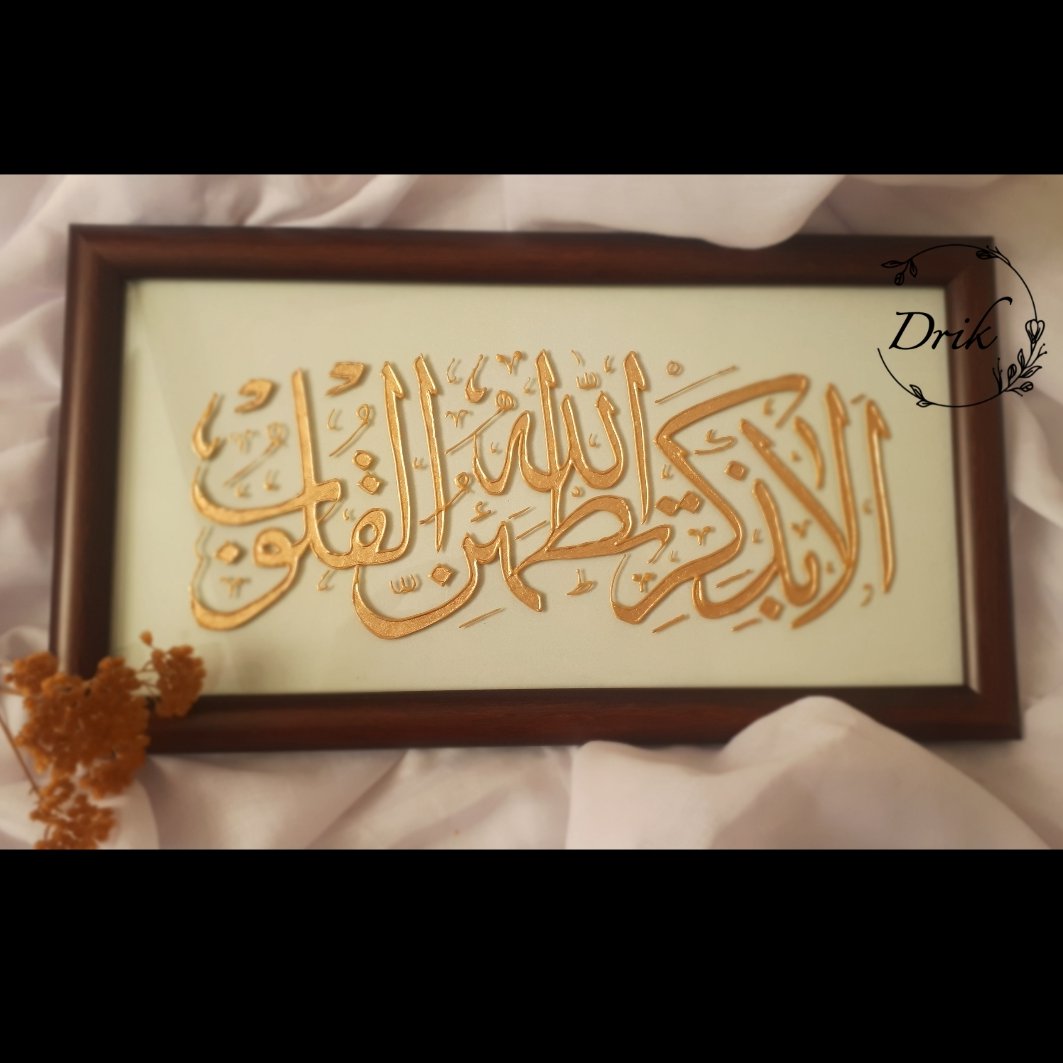 ألا بذكر الله تطمئن القلوب
Drik